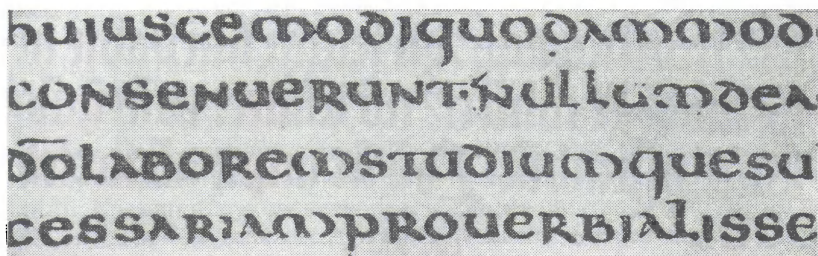 huiuscemodiquodammod
consenuerunt·nullumdea
dōlaboremstudiumquesu
cessariamproverbialisse